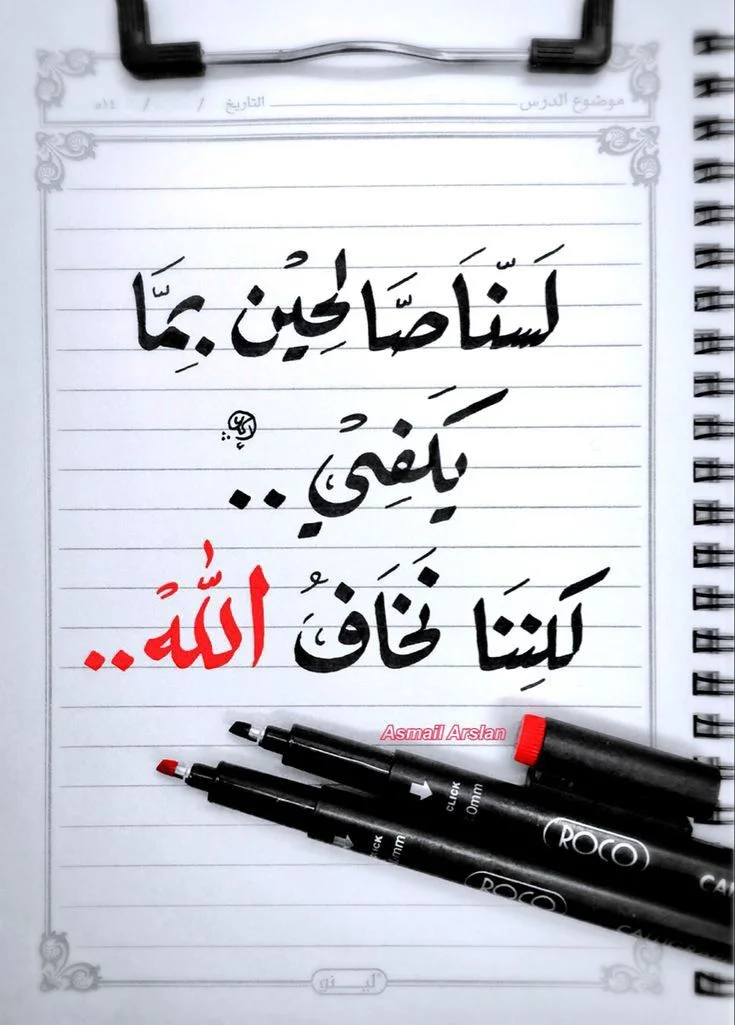 موضوع الدرس التاريخ / / ١٤هـ
لَسْنَا صَالِحِيْن بِمَّا
يَكْفِيْ ..
لَكِنِنَا نَخَافُ اللّٰهْ..
Asmail Arslan
CLICK 0mm ROCO CA
ICK mm ROCO CALLIGRA
لينو